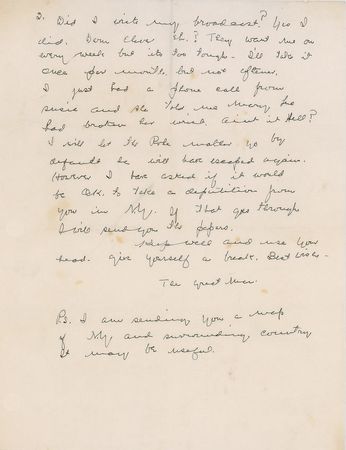 2. Did I write my broadcast? Yes I
did. Damn clever eh? They want me on
every week but its too tough. I'll take it
once per month, but not oftener.
I just had a phone call from
Susie and she told me Mary he
had broken her wrist, aint it Hell?
I will let the Pole matter go by
default he will have escaped again.
However I have asked if it would
be O.K. to take a deposition from
you in N.Y. If that goes through
I will send you the papers.
Keep well and use your
head. Give yourself a break. Best
The Great
P.S. I am sending you a map
of N.Y. and surrounding country
It may be useful.